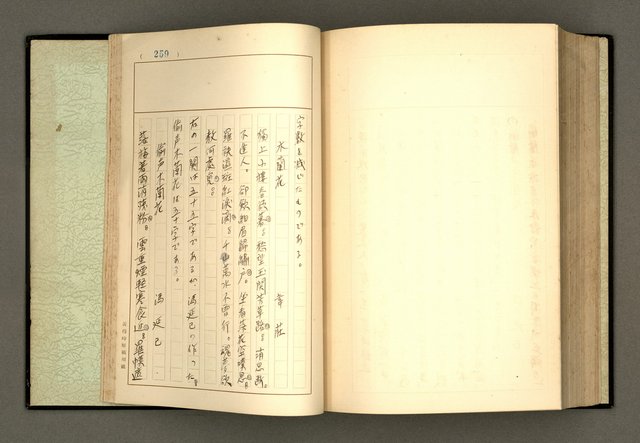 ( 259 )
字数を減じたものである。
木蘭花 韋莊
獨上小樓春欲暮。愁望玉関芳草路。消息斷。
不逢人。卻斂細眉歸繡戶。坐看落花空嘆息。
羅袂濕斑紅淚滴。千山萬水不曾行。魂夢欲
教何處覓。
右の一闋は五十五字であるが、馮延巳の作つた
偷声木蘭花は五十字である。
偷声木蘭花 馮延巳
落梅著雨消殘粉。雲重煙輕寒食近。羅幕遮